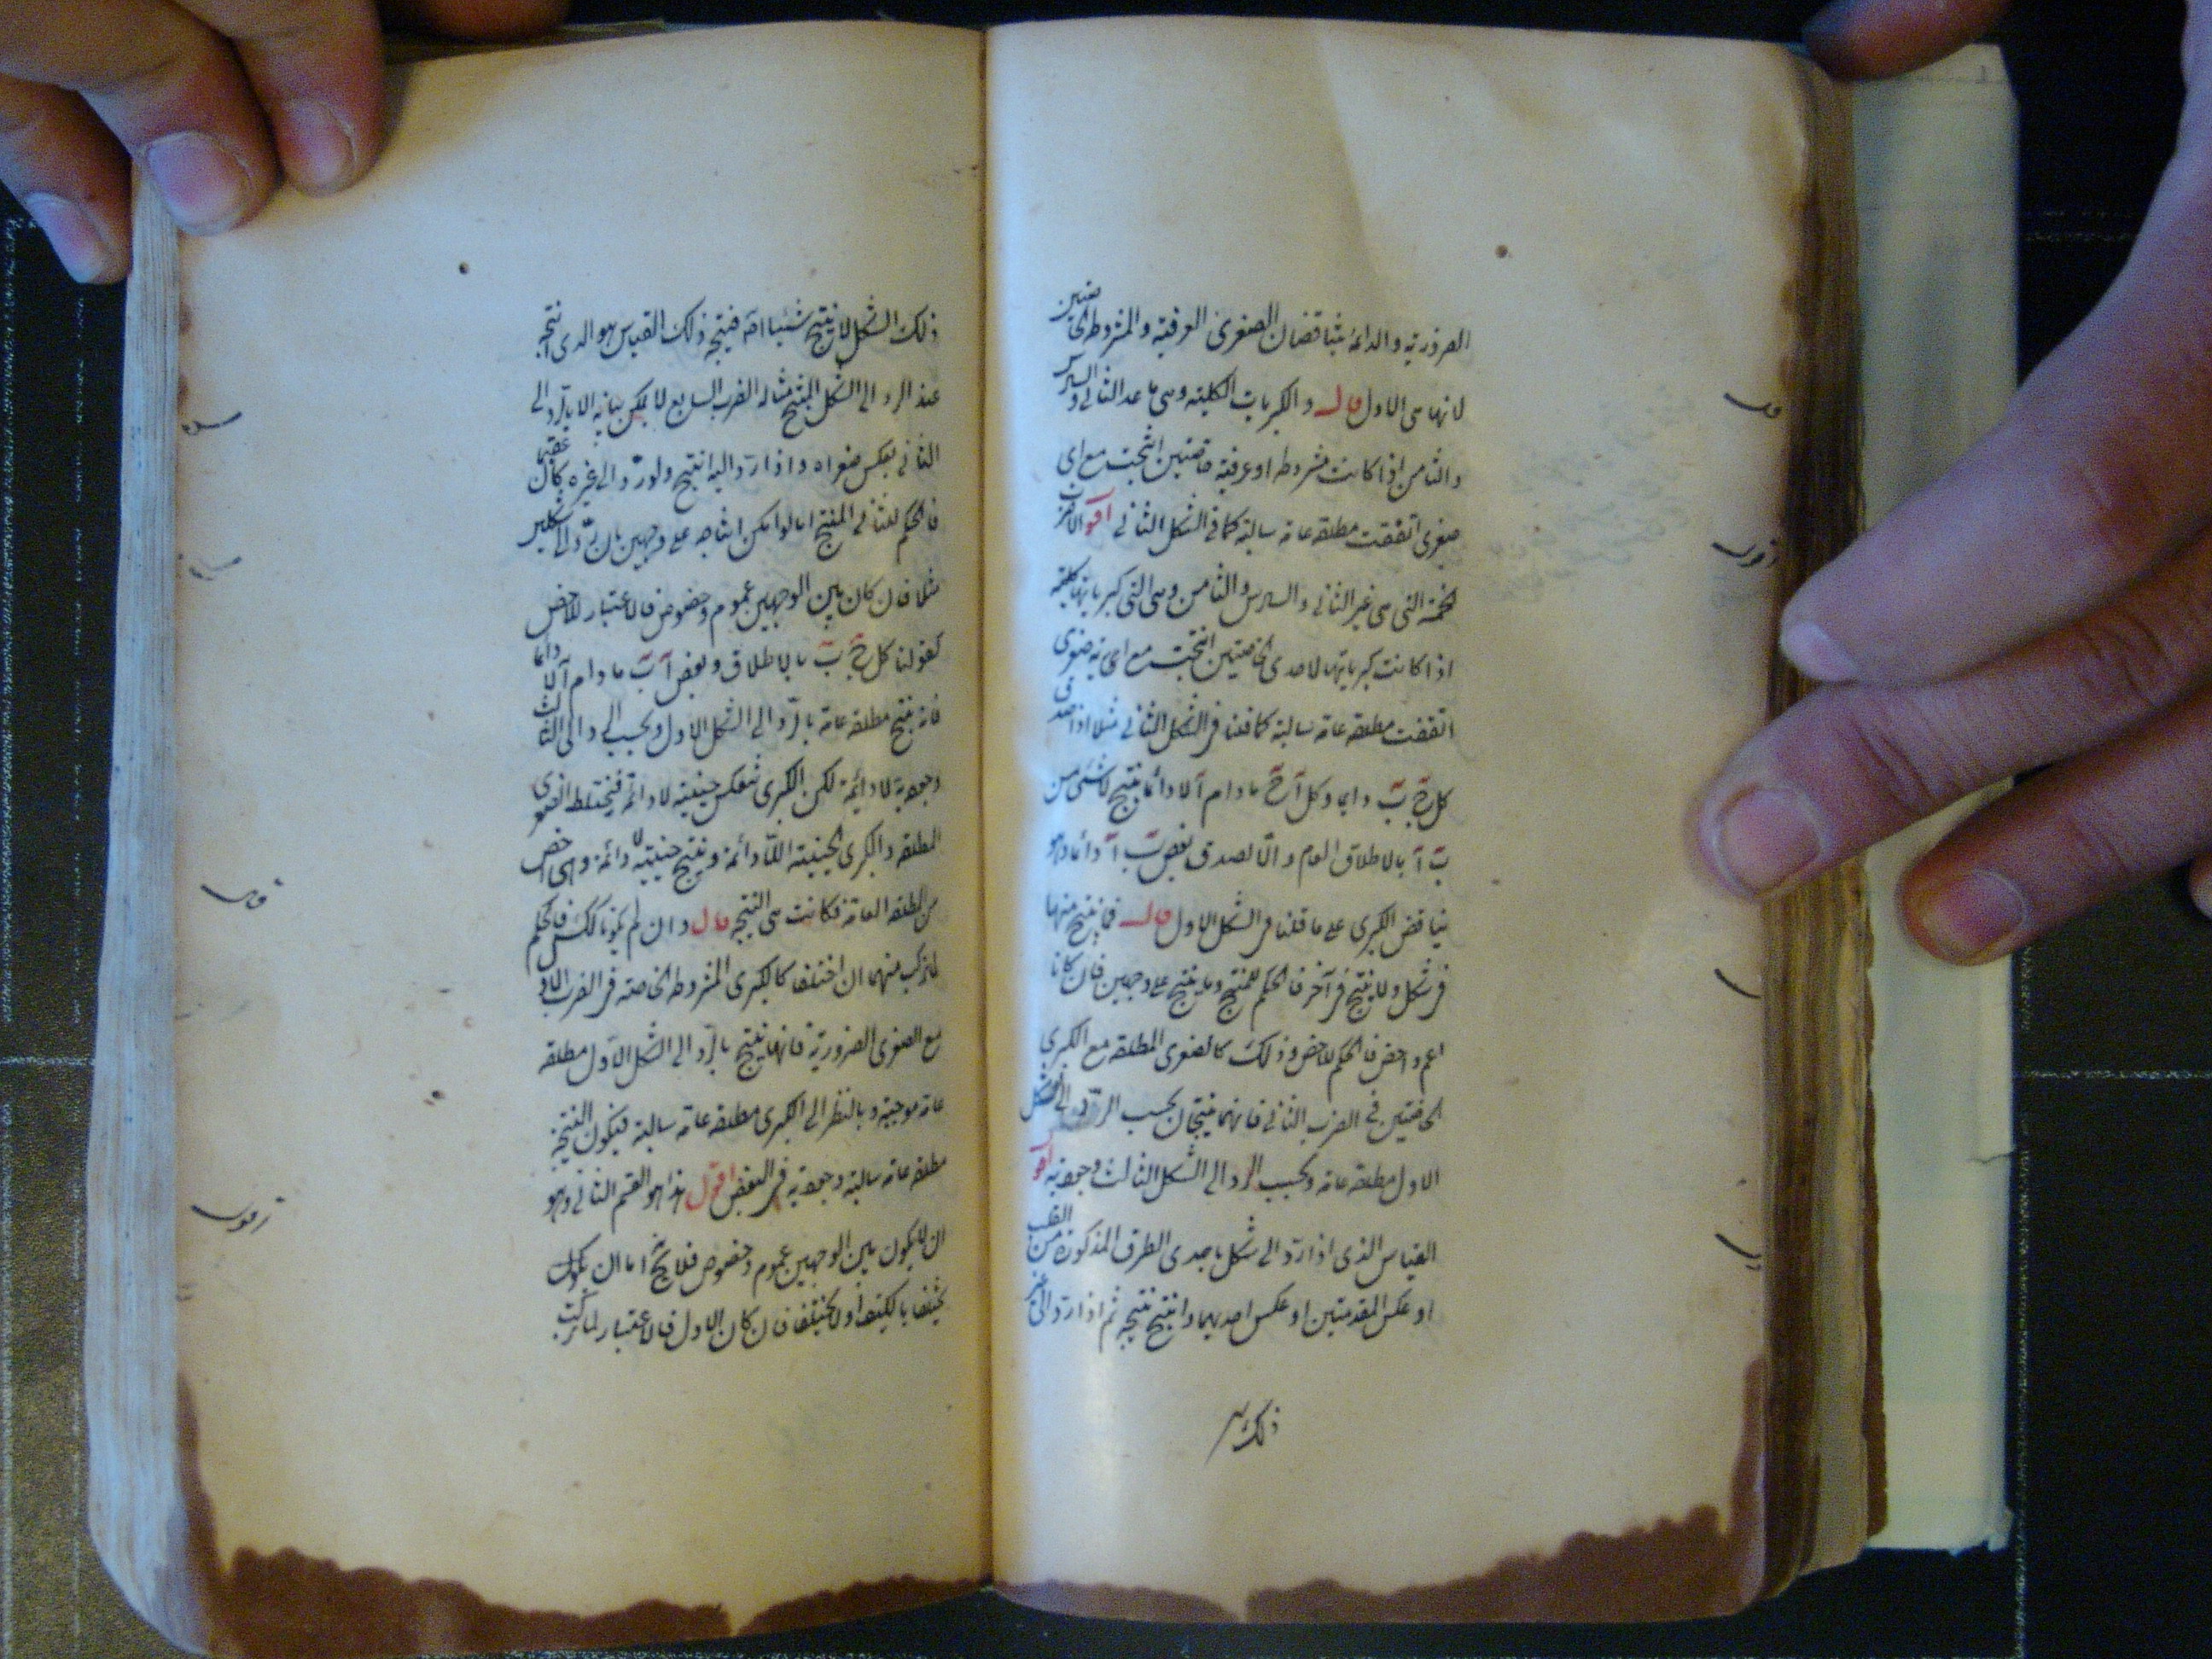 الضرورية والدائمة يناقضان الصغرى العرفية والمشروطة الخا
صتين
لانها هى الاول قال والكبريات الكلية وهى ما عدا الثانى والسادس
والثامن اذا كانت مشروطة او عرفية خاصتين انتجت مع اى
صغرى اتفقت مطلقة عامة سالبة كما فى الشكل الثانى اقول الاضرب
الخمسة التى هى غير الثانى والسادس والثامن وهى التى كبرياتها كلية
اذا كانت كبرياتها لاحدى الخاصتين انتجت مع اى صغرى
اتفقت مطلقة عامة سالبة كما قلنا فى الشكل الثانى مثلا اذا صدق
كل ج ب دايما وكل آ ج ما دام آ لا دائما ينتج لا شئ من
ب آ بالاطلاق العام والا لصدق بعض ب آ دائما وهو
يناقض الكبرى على ما قلنا فى الشكل الاول قال فما ينتج منها
فى شكل ولا ينتج فى آخر فالحكم للمنتج وما ينتج على وجهين فان كانا
اعم واخص فالحكم للاخص وذلك كالصغرى المطلقة مع الكبرى
الخاصتين فى الضرب الثانى فانهما ينتجان بحسب الرد الى الشكل
الاول مطلقة عامة وبحسب الرد الى الشكل الثالث وجودية اقول
القياس الذى اذا رد الى شكل باحدى الطرق المذكورة من القلب
او عكس المقدمتين او عكس احديهما وانتج نتيجة ثم اذا رد الى غير
ذلك
ذلك الشكل لا ينتج شيئا اصلا فنتيجة ذلك القياس هو الذى انتجه
عند الرد الى الشكل المنتج مثاله الضرب السابع لا يمكن بيانه الا بالرد الى
الثانى بعكس صغراه واذا رد اليه انتج ولو رد الى غيره كان عقيما
فالحكم للثانى المنتج اما لو امكن انتاجه على وجهين بان يرد الى شكلين
مثلا فان كان بين الوجهين عموم وخصوص فالاعتبار للاخص
كقولنا كل ج ب بالاطلاق وبعض آ ب ما دام آ لا دايما
فانه ينتج مطلقة عامة بالرد الى الشكل الاول وبحسب الرد الى الثالث
وجودية لا دائمة لكن الكبرى تنعكس حينية لا دائمة فيختلط الصغرى
المطلقة والكبرى الحينية اللا دائمة وينتج حينية لا دائمة وهى اخص
من المطلقة العامة فكانت هى النتيجة قال وان لم يكونا كذلك فالحكم
لما تركب منهما ان اختلفا كالكبرى المشروطة الخاصة فى الضرب الاول
مع الصغرى الضرورية فانها ينتج بالرد الى الشكل الاول مطلقة
عامة موجبة وبالنظر الى الكبرى مطلقة عامة سالبة فيكون النتيجة
مطلقة عامة سالبة وجودية فى البعض اقول هذا هو القسم الثانى وهو
ان لا يكون بين الوجهين عموم وخصوص فلا يخ اما ان يكون
يختلفا بالكيف او لا يختلفا فان كان الاول فالاعتبار لما تركب